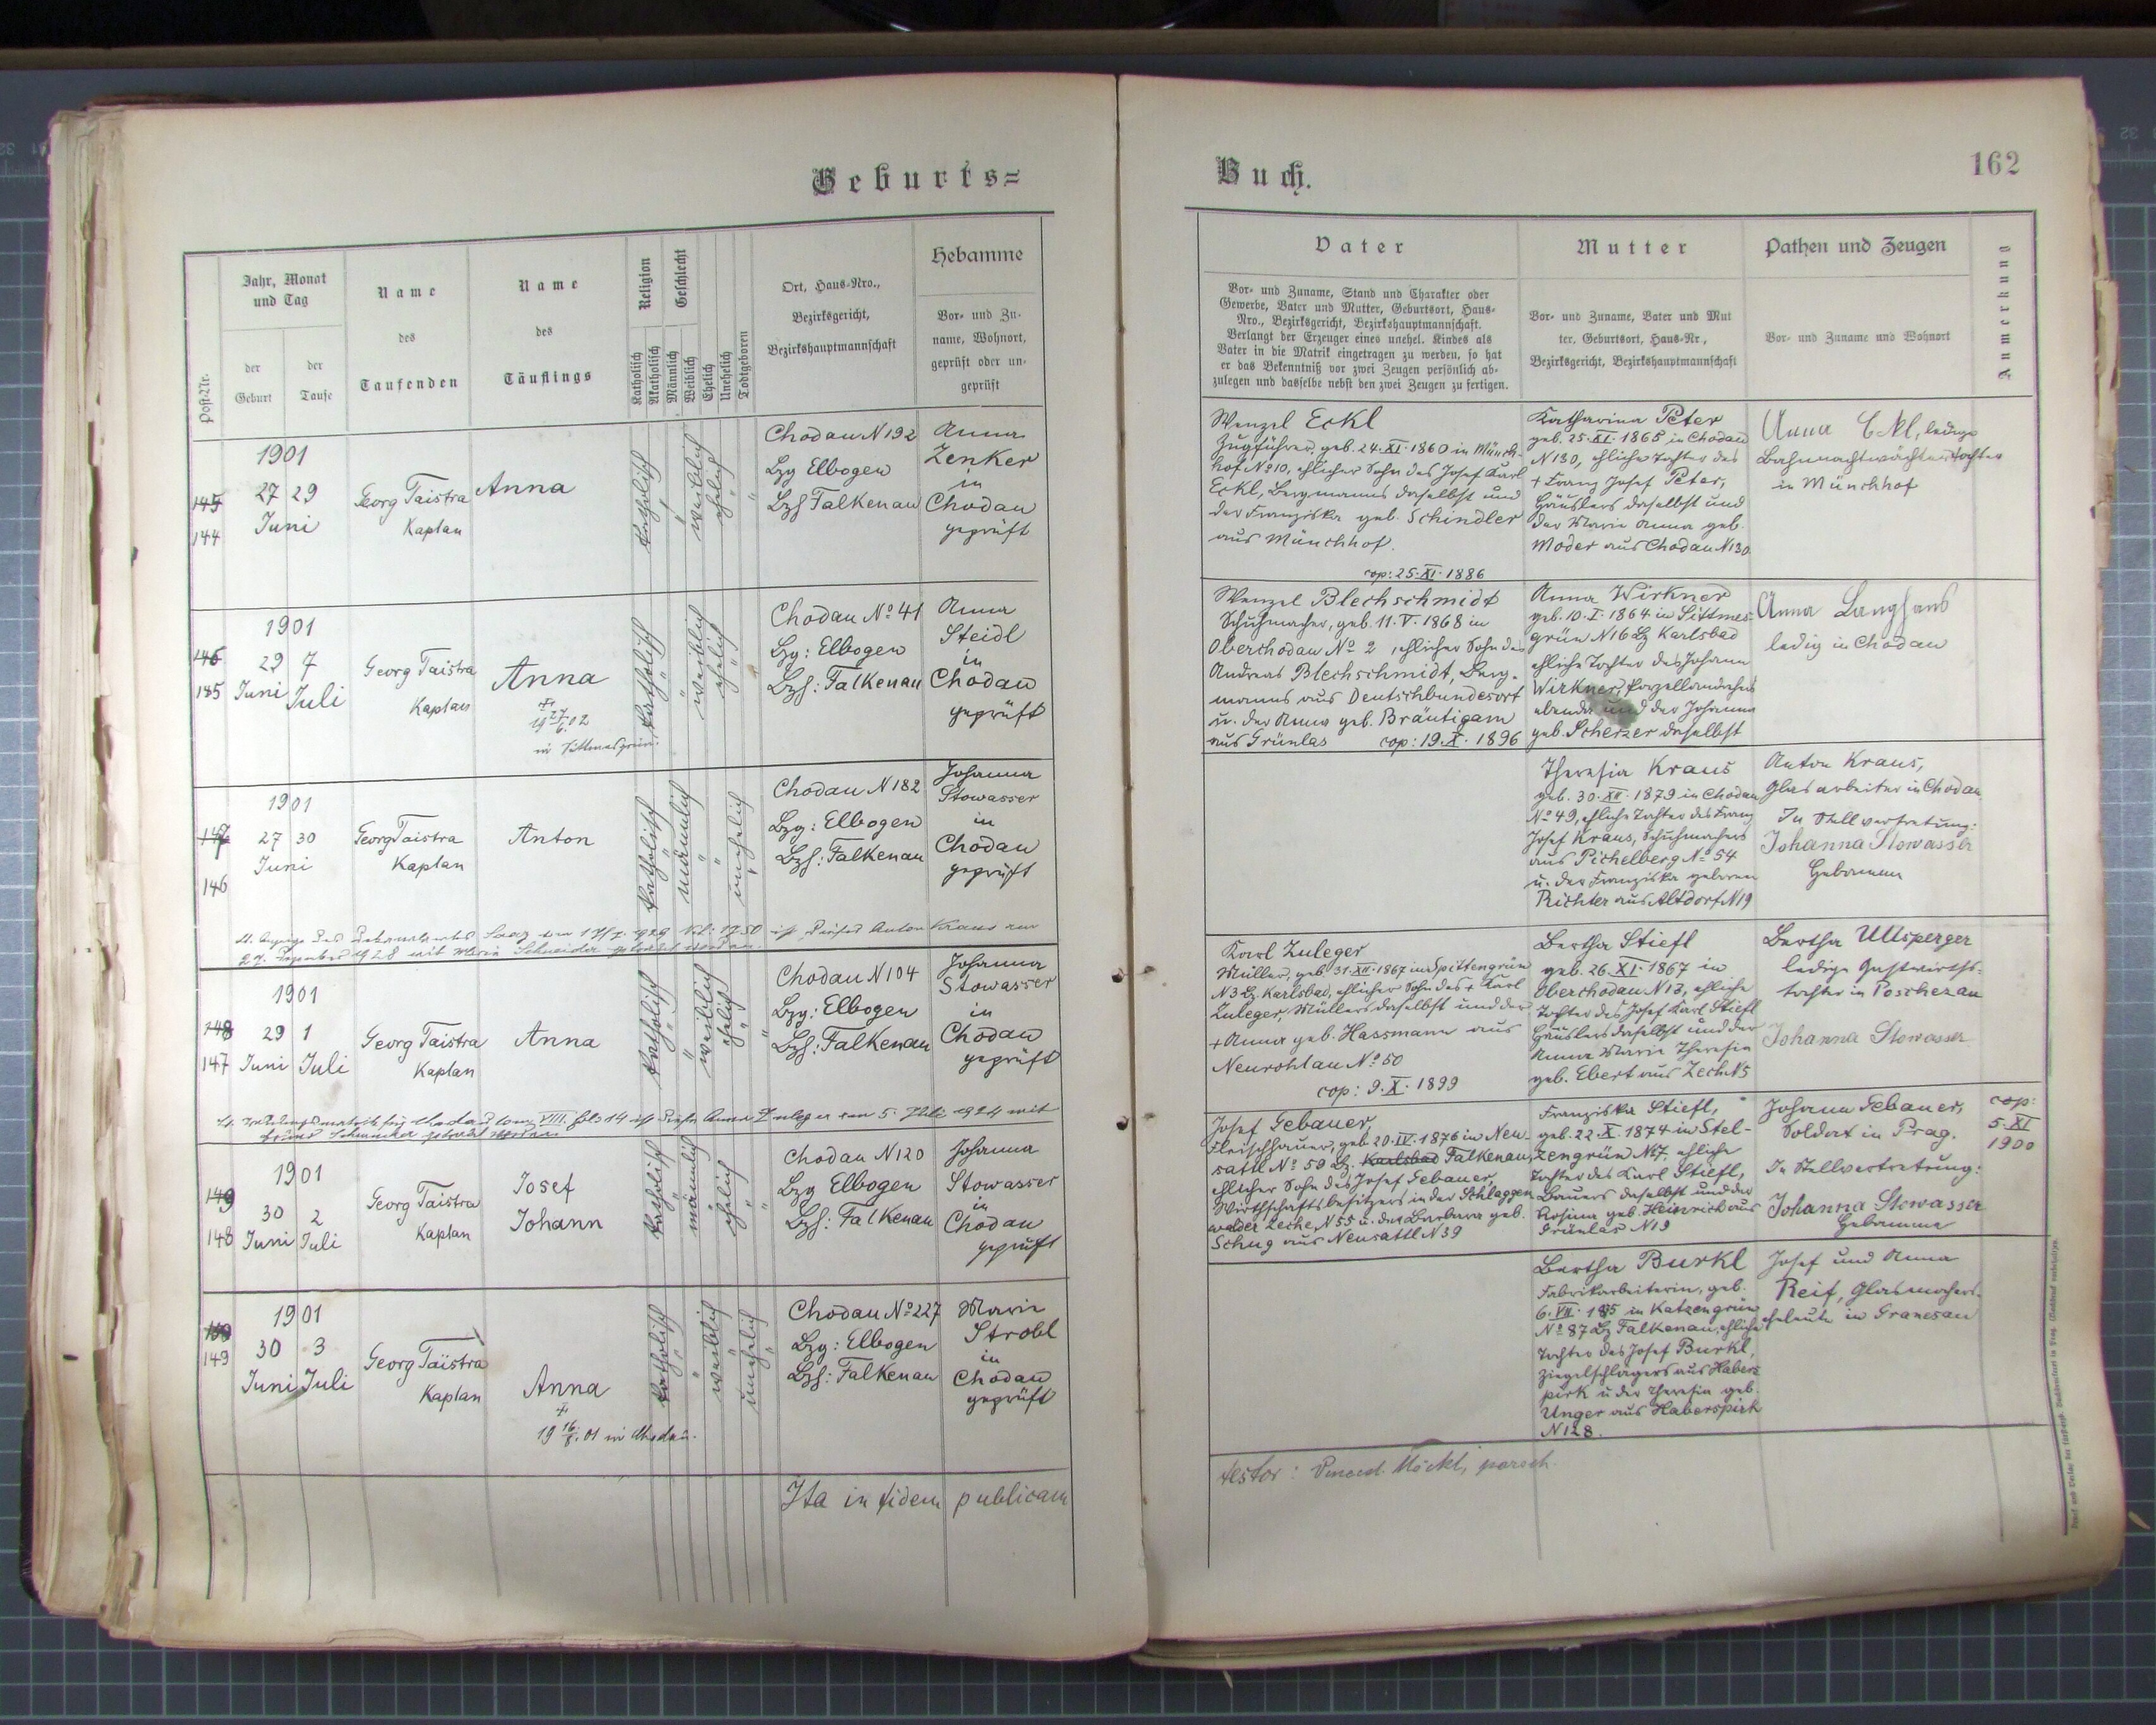 Geburts=
Post-Nr.
Jahr, Monat
und Tag
der
Geburt
der
Taufe
Name
des
Taufenden
Name
des
Täuflings
Religion
Katholisch
Akatholisch
Geschlecht
Männlich
Weiblich
Ehelich
Unehelich
Todtgeboren
Ort, Haus-Nro.,
Bezirksgericht,
Bezirkshauptmannschaft
Hebamme
Vor- und Zu-
name, Wohnort,
geprüft oder un-
geprüft
145
144
1901
27 29
Juni
Georg Taistra
Kaplan
Anna
katholisch
weiblich
ehelich
Chodau N192
Bzg Elbogen
Bzh Falkenau
Anna
Zenker
in
Chodau
geprüft
146
185
1901
29 7
Juni Juli
Georg Taistra
Kaplan
Anna
in Sittmesgrün.
katholisch
weiblich
ehelich
Chodau No 41
Bzg: Elbogen
Bzh: Falkenau
Anna
Steidl
in
Chodau
geprüft
147
146
1901
27 30
Juni
Georg Taistra
Kaplan
Anton
katholisch
männlich
unehelich
Chodau N 182
Bzg: Elbogen
Bzh: Falkenau
Johanna
Stowasser
in
Chodau
geprüft
ist dieser Anton Kraus am
27. Dezember 1928 mit Maria Schneider getraut worden.
148
147
1901
29 1
Juni Juli
Georg Taistra
Kaplan
Anna
katholisch
weiblich
ehelich
Chodau N 104
Bzg: Elbogen
Bzh: Falkenau
Johanna
Stowasser
in
Chodau
geprüft
Chodau tom VIII. fol. 14 ist diese Anna Zuleger am 5. Juli 1924 mit
getraut worden.
149
148
1901
30 2
Juni Juli
Georg Taistra
Kaplan
Josef
Johann
katholisch
männlich
ehelich
Chodau N120
Bzg Elbogen
Bzh: Falkenau
Johanna
Stowasser
in
Chodau
geprüft
150
149
1901
30 3
Juni Juli
Georg Taistra
Kaplan
Anna
19 16/8. 01 in Chodau.
katholisch
weiblich
unehelich
Chodau No 227
Bzg: Elbogen
Bzh: Falkenau
Marie
Strobl
in
Chodau
geprüft
Ita in fidem publicam
Buch.
162
Vater
Vor- und Zuname, Stand und Charakter oder
Gewerbe, Vater und Mutter, Geburtsort, Haus-
Nro., Bezirksgericht, Bezirkshauptmannschaft.
Verlangt der Erzeuger eines unehel. Kindes als
Vater in die Matrik eingetragen zu werden, so hat
er das Bekenntniß vor zwei Zeugen persönlich ab-
zulegen und dasselbe nebst den zwei Zeugen zu fertigen.
Mutter
Vor- und Zuname, Vater und Mut
ter, Geburtsort, Haus-Nr.,
Bezirksgericht, Bezirkshauptmannschaft
Pathen und Zeugen
Vor- und Zuname und Wohnort
Anmerkung
Wenzel Eckl
Zugführer, geb. 24.XI.1860 in Münch-
hof No 10, ehlicher Sohn des Josef Karl
Eckl, Bergmanns daselbst und
der Franziska geb. Schindler
aus Münchhof.
cop: 25.XI.1886
Katharina Peter
geb. 25.XI.1865 in Chodau
N 130, ehliche Tochter des
+ Franz Josef Peter,
Häuslers daselbst und
der Marie Anna geb.
Moder aus Chodau N130
Anna Eckl, ledige
Bahnnachtwächterstochter
in Münchhof
Wenzel Blechschmidt
Schuhmacher, geb. 11.V.1868 in
Oberchodau No 2, ehlicher Sohn des
Andreas Blechschmidt, Berg-
manns aus Deutschbundesort
u. der Anna geb. Bräutigam
aus Grünlas cop: 19.X.1896
Anna Wirkner
geb. 10.I.1864 in Sittmes-
grün N16 Bz Karlsbad
ehliche Tochter des Johann
Wirkner, Porzellandrehers
ebenda und der Johanna
geb. Scherzer daselbst
Anna Langhans
ledig in Chodau
Theresia Kraus
geb. 30.XII.1879 in Chodau
No 49, ehliche Tochter des Franz
Josef Kraus, Schuhmachers
aus Pichelberg No 54
u. der Franziska geboren
Richter aus Altdorf N19
Anton Kraus,
Glasarbeiter in Chodau
In Stellvertretung:
Johanna Stowasser
Hebamme
Karl Zuleger
Müller, geb. 31.XII.1867 in Spittengrün
N3 Bz. Karlsbad, ehlicher Sohn des + Karl
Zuleger, Müllers daselbst und der
+ Anna geb. Hassmann aus
Neurohlau No 50
cop: 9.X.1899
Bertha Stiefl
geb. 26.XI.1867 in
Oberchodau N13, ehliche
Tochter des Josef Karl Stiefl
Häuslers daselbst und der
Anna Marie Theresia
geb. Ebert aus Zech N5
Bertha Ullsperger
ledige Gastwirths-
tochter in Poschezau
Johanna Stowasser
Josef Gebauer,
Fleischhauer, geb. 20.IV.1876 in Neu-
sattl No 59 Bz. Karlsbad Falkenau,
ehlicher Sohn des Josef Gebauer,
Wirthschaftsbesitzers in der Schlaggen
walder Zeche, N 55 u. der Barbara geb.
Schug aus Neusattl N39
Franziska Stiefl,
geb. 22.X.1874 in Stel-
zengrün N17, ehliche
Tochter des Karl Stiefl,
Bauers daselbst und der
Rosina geb. Heinrich aus
Grünlas N19
Johann Gebauer,
Soldat in Prag.
In Stellvertretung:
Johanna Stowasser
Hebamme
cop:
5.XI
1900
Bertha Burkl
Fabrikarbeiterin, geb.
6.VII. in Katzengrün
No 87 Bz Falkenau, ehliche
Tochter des Josef Burkl,
Ziegelschlagers aus Habers
pirk u. der Theresia geb.
Unger aus Haberspirk
N 128.
Josef und Anna
Reif, Glasmachers-
eheleute in Granesau
testor: Vinced. Möckl, paroch.